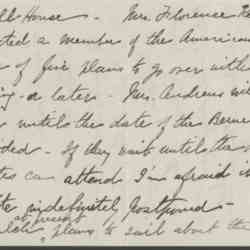 ll House - Mrs. Florence
ted a member of the American
of five plans to go over with
ing - a later - Mrs. Andrews wi
until the date of the Berne
ded - If they wait until the
can attend I'm afraid
te indefinitely postponed -
at present
plans to sail about the